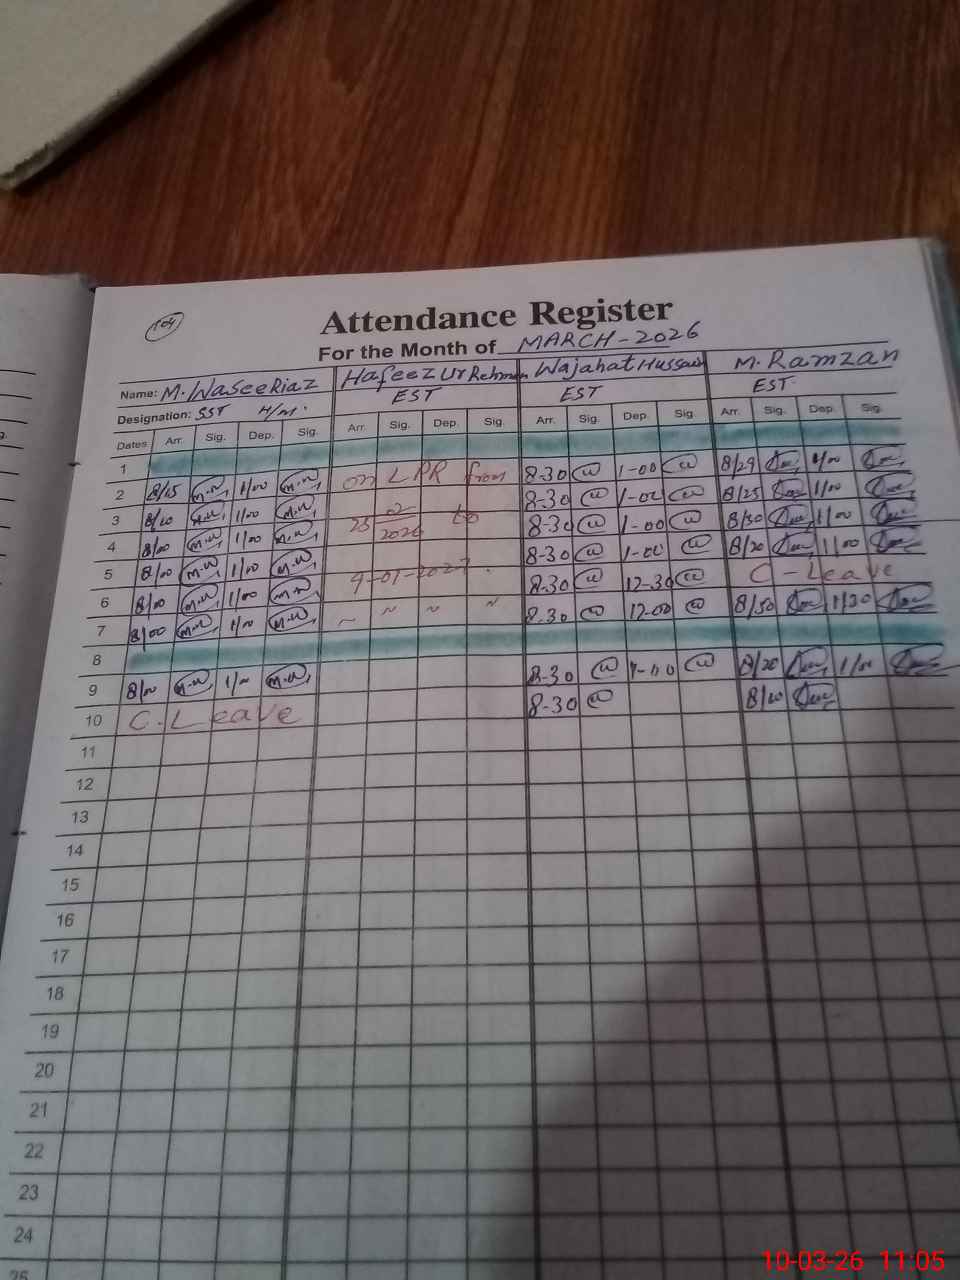 104
Attendance Register
For the Month of MARCH-2026
Name: M. Wasee Riaz Hafeez Ur Rehman Wajahat Hussain M. Ramzan
Designation: SST H/M. EST EST EST
Dates Arr. Sig. Dep. Sig. Arr. Sig. Dep. Sig. Arr. Sig. Dep. Sig. Arr. Sig. Dep. Sig.
1
2 8/15 M.W 1/00 M.W on LPR from 8-30 1-00 8/29 1/00
3 8/10 M.W 1/00 M.W 25 02 2026 to 8-30 1-00 8/25 1/00
4 8/00 M.W 1/00 M.W 8-30 1-00 8/30 1/00
5 8/00 M.W 1/00 M.W 4-01-2027. 8-30 1-00 8/20 1/00
6 8/00 M.W 1/00 M.W 8-30 12-30 C-Leave
7 8/00 M.W 1/00 M.W 8-30 12-00 8/50 1/30
8
9 8/00 M.W 1/00 M.W 8-30 1-00 8/20 1/00
10 C.Leave 8-30 8/20
11
12
13
14
15
16
17
18
19
20
21
22
23
24
25
10-03-26 11:05